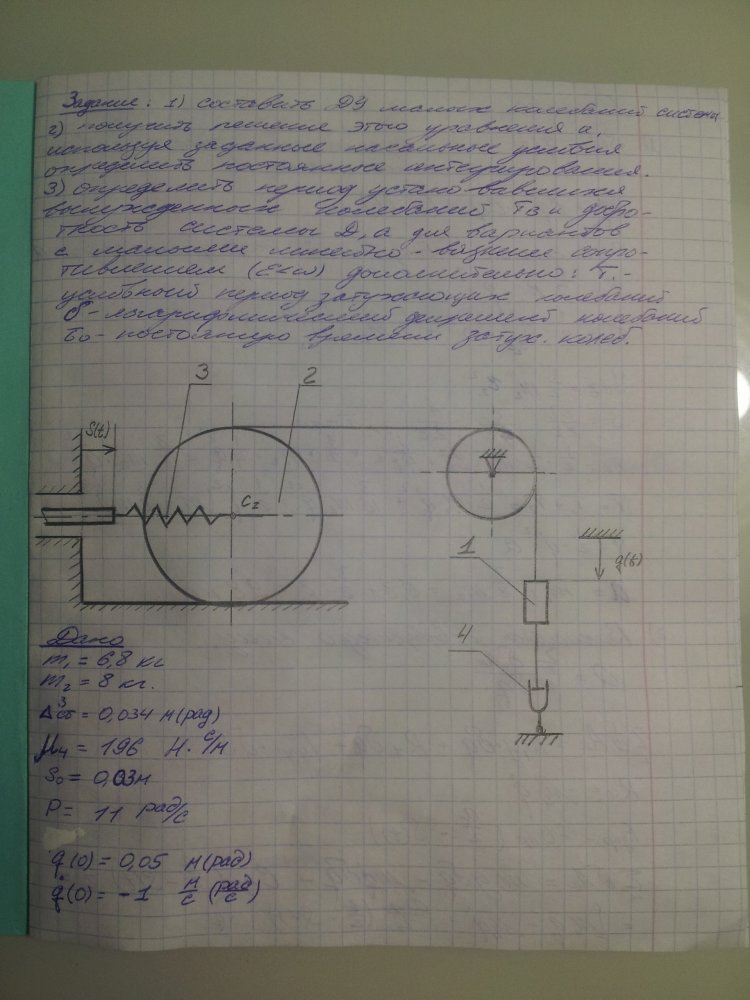 Задание: 1) составить ДУ малых колебаний системы
2) получить решение этого уравнения и,
используя заданные начальные условия
определить постоянные интегрирования.
3) определить период установившихся
вынужденных колебаний Тв и добро-
тность системы Д, а для вариантов
с малым линейно-вязким сопро-
тивлением (ε<ω) дополнительно: T₁-
условный период затухающих колебаний
δ-логарифмический декремент колебаний
τ₀-постоянную времени затух. колеб.
3
2
S(t)
C₂
1
q(t)
4
Дано
m₁ = 6,8 кг
m₂ = 8 кг.
Δ³ст = 0,034 м(рад)
μ₄ = 196 Н·с/м
S₀ = 0,03м
P = 11 рад/с
q(0) = 0,05 м(рад)
q̇(0) = -1 м/с (рад/с)